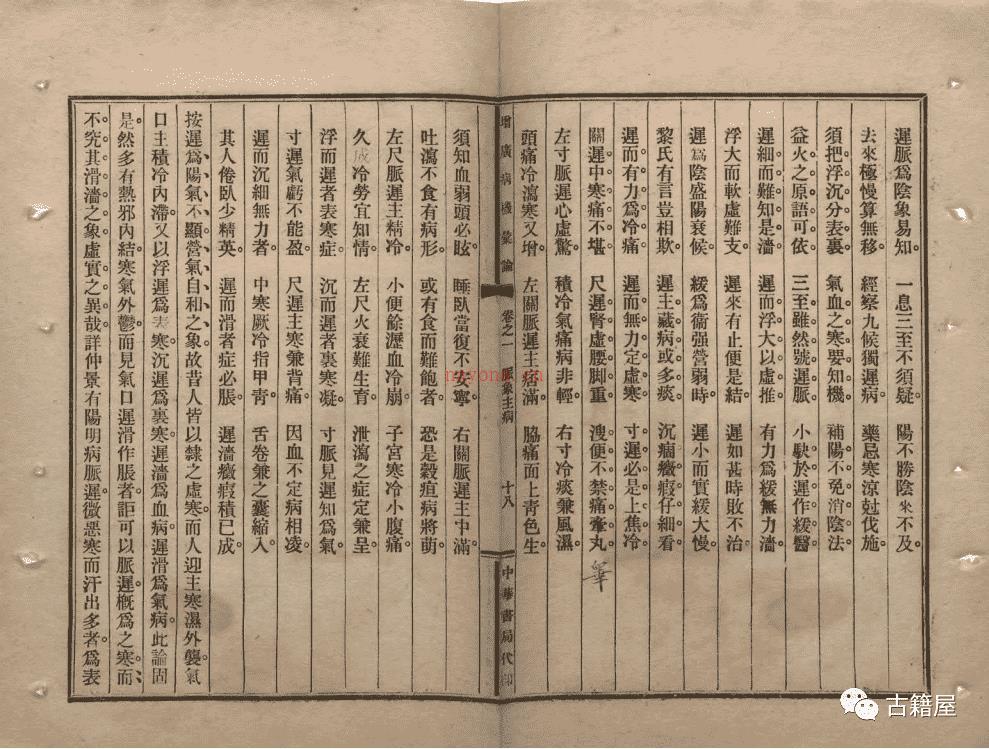 遲脈爲陰象易知　一息三至不須疑　陽不勝陰來不及
去來極慢算無移　經察九候獨遲病　藥忌寒涼尅伐施
須把浮沉分表裏　氣血之寒要知機　補陽不免消陰法
益火之原語可依　三至雖然號遲脈　小駃於遲作緩醫
遲細而難知是濇　遲而浮大以虛推　有力爲緩無力濇
浮大而軟虛難支　遲來有止便是結　遲如甚時敗不治
遲爲陰盛陽衰候　緩爲衞强營弱時　遲小而實緩大慢
黎氏有言豈相欺　遲主藏病或多痰　沉痼癥瘕仔細看
遲而有力爲冷痛　遲而無力定虛寒　寸遲必是上焦冷
關遲中寒痛不堪　尺遲腎虛腰脚重　溲便不禁痛牽丸
左寸脈遲心虛驚　積冷氣痛病非輕　右寸冷痰兼風濕
頭痛冷瀉寒又增　左關脈遲主㽲滿　脇痛面上靑色生
增廣病機彙論　卷之一　脈象主病　十八　中華書局代印
須知血弱頭必眩　睡臥當復不安寧　右關脈遲主中滿
吐瀉不食有病形　或有食而難飽者　恐是穀疸病將萌
左尺脈遲主精冷　小便餘瀝血冷崩　子宮寒冷小腹痛
久成冷勞宜知情　左尺火衰難生育　泄瀉之症定兼呈
浮而遲者表寒症　沉而遲者裏寒凝　寸脈見遲知爲氣
寸遲氣虧不能盈　尺遲主寒兼背痛　因血不定病相凌
遲而沉細無力者　中寒厥冷指甲靑　舌卷兼之囊縮入
其人倦臥少精英　遲而滑者症必脹　遲濇癥瘕積已成
按遲爲陽氣不顯營氣自和之象故昔人皆以隸之虛寒而人迎主寒濕外襲氣
口主積冷內滯又以浮遲爲表寒沉遲爲裏寒遲濇爲血病遲滑爲氣病此論固
是然多有熱邪內結寒氣外鬱而見氣口遲滑作脹者詎可以脈遲槪爲之寒而
不究其滑濇之象虛實之異哉詳仲景有陽明病脈遲微惡寒而汗出多者爲表
nayona.cn
古籍屋